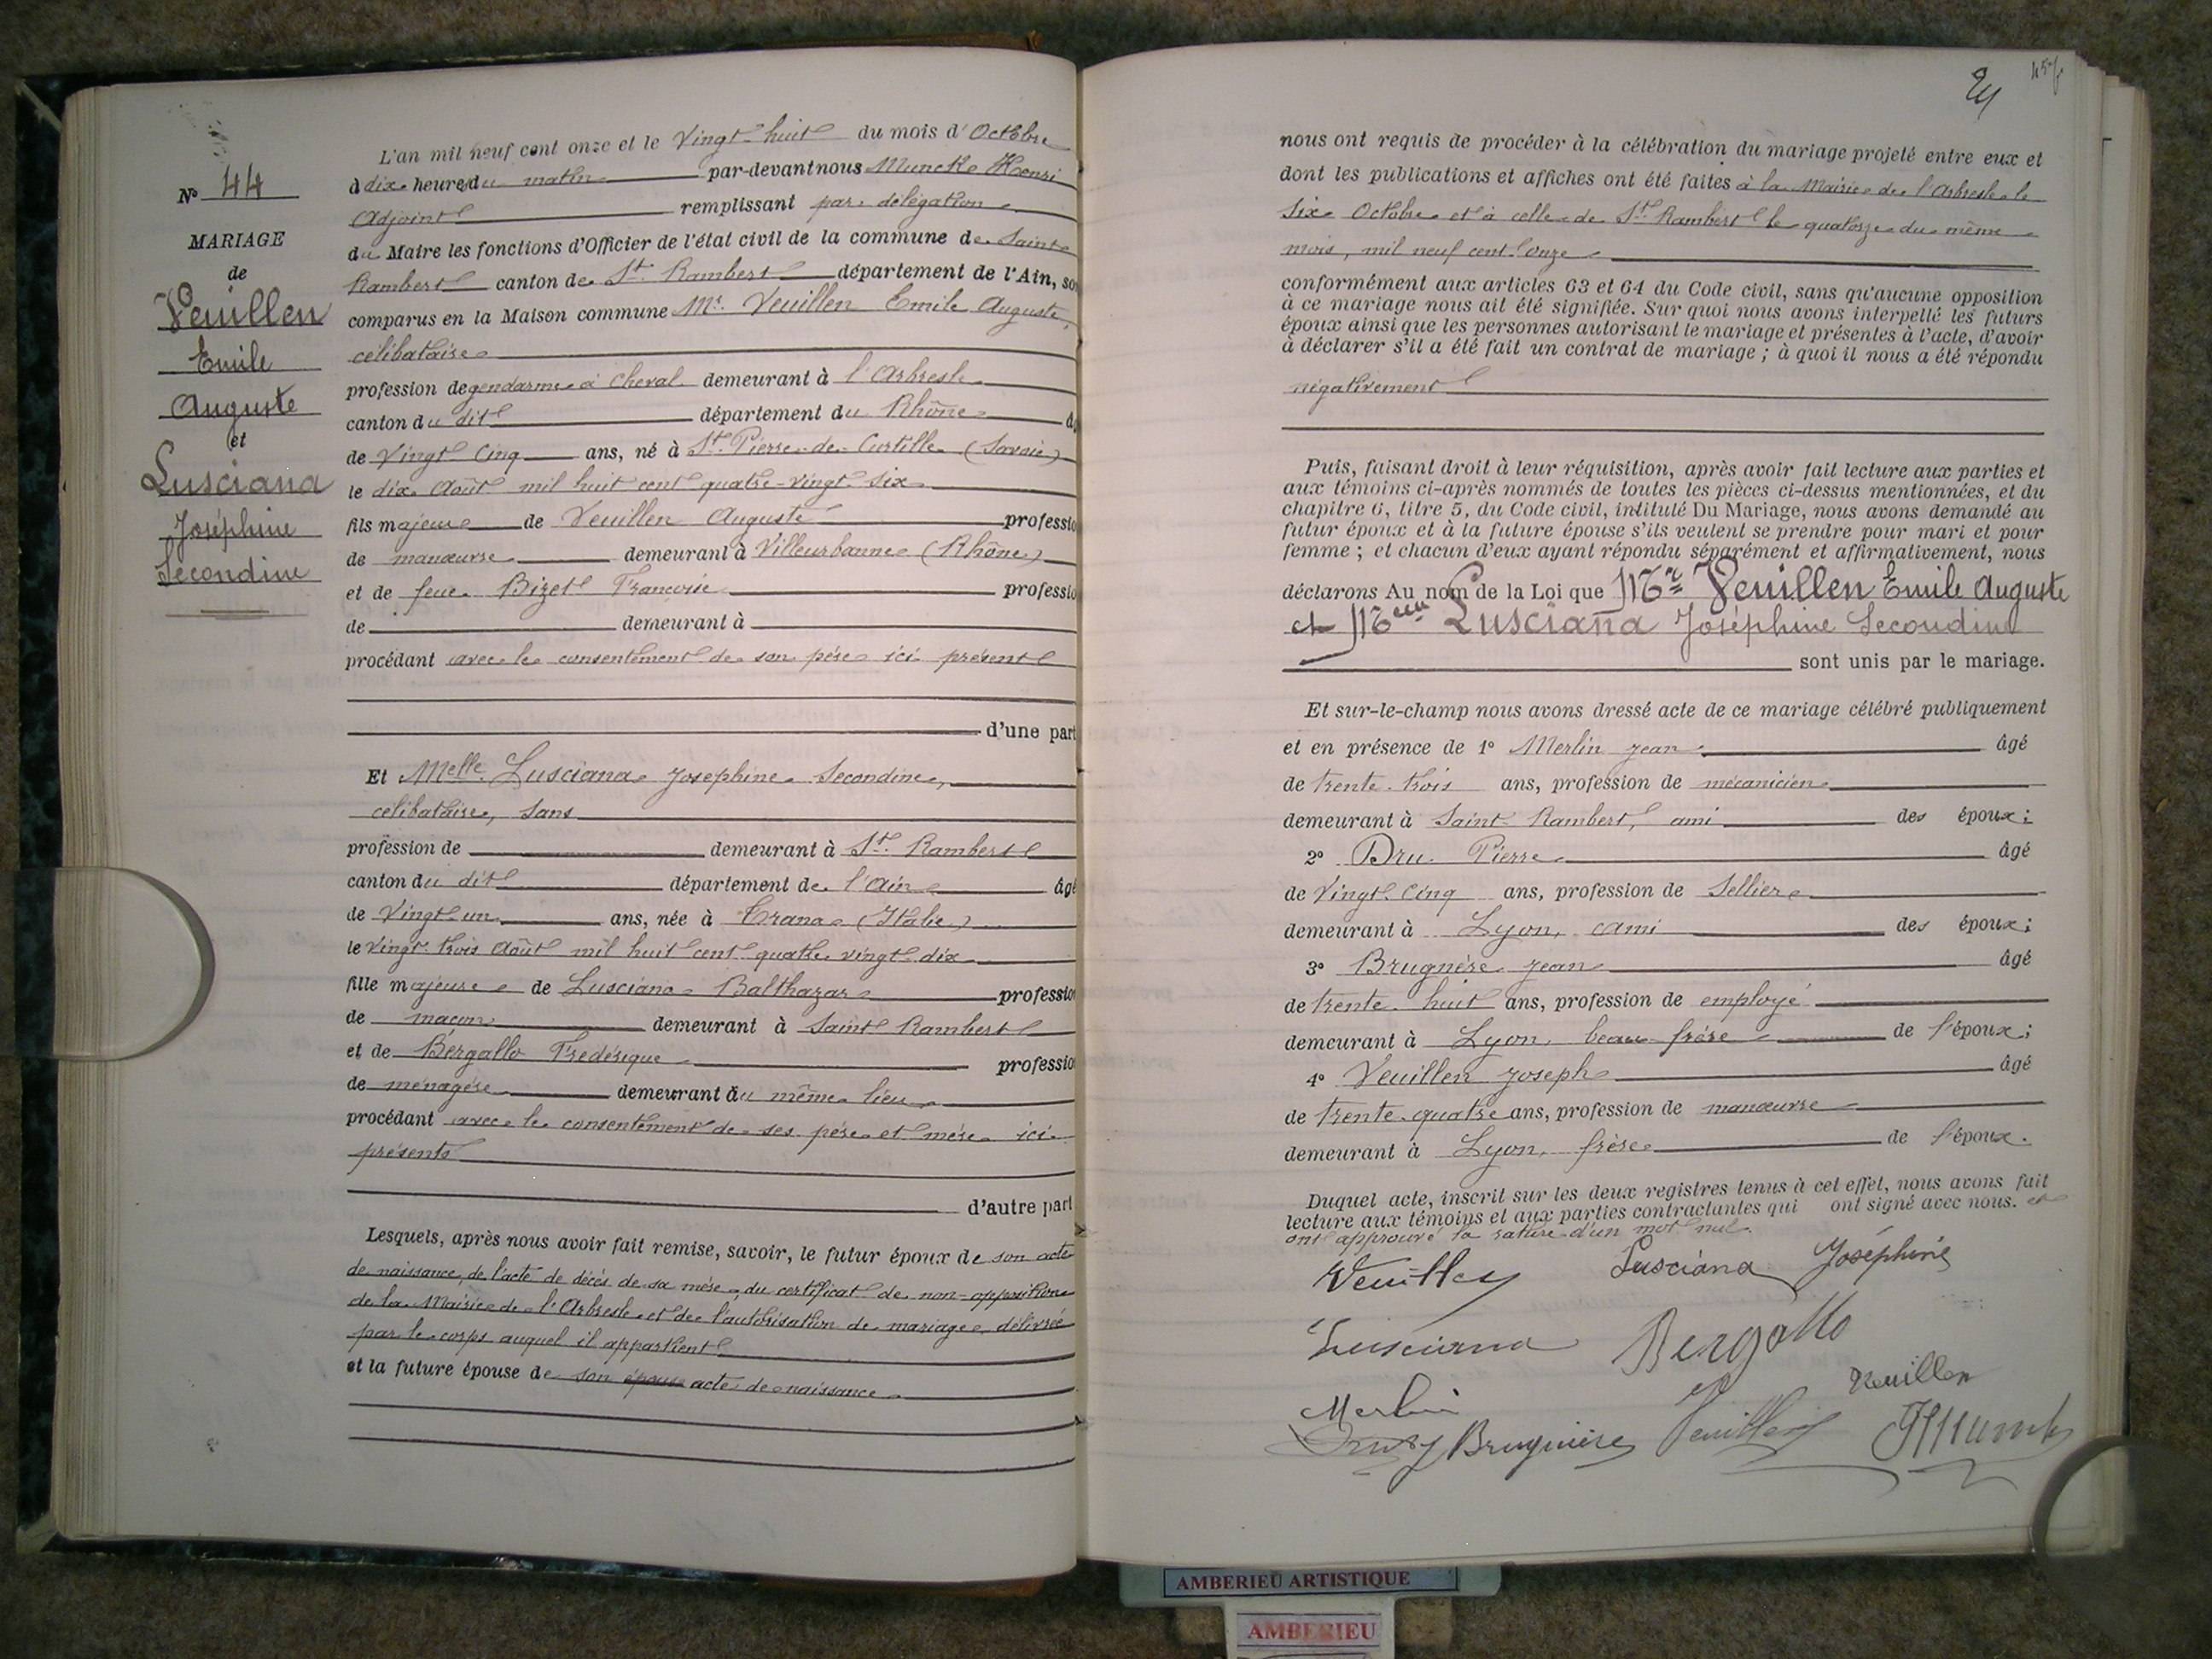 N° 44
MARIAGE
de
Veuillen
Emile
Auguste
et
Lusciana
Joséphine
Secondine
L'an mil neuf cent onze et le Vingt-huit du mois d'Octobre
à dix heures du matin par-devant nous Muncke Henri
Adjoint remplissant par délégation
du Maire les fonctions d'Officier de l'état civil de la commune de Saint
Rambert canton de St. Rambert département de l'Ain, so
comparus en la Maison commune Mr. Veuillen Emile Auguste,
célibataire
profession de gendarme à cheval demeurant à l'Arbresle
canton du dit département du Rhône âg
de Vingt cinq ans, né à St. Pierre-de-Curtille (Savoie)
le dix Août mil huit cent quatre-vingt-six
fils majeur de Veuillen Auguste professio
de manœuvre demeurant à Villeurbanne (Rhône)
et de feue Bizet Françoise professio
de demeurant à
procédant avec le consentement de son père ici présent
d'une part
Et Melle Lusciana Josephine Secondine,
célibataire, sans
profession de demeurant à St. Rambert
canton du dit département de l'Ain âgé
de Vingt-un ans, née à Trana (Italie)
le Vingt-trois Août mil huit cent quatre vingt-dix
fille majeure de Lusciana Balthazar profession
de maçon demeurant à Saint Rambert
et de Bergallo Frédérique professio
de ménagère demeurant au même lieu
procédant avec le consentement de ses père et mère ici
présents
d'autre part
Lesquels, après nous avoir fait remise, savoir, le futur époux de son acte
de naissance, de l'acte de décès de sa mère, du certificat de non-opposition
de la Mairie de l'Arbresle et de l'autorisation de mariage délivrée
par le corps auquel il appartient
et la future épouse de son épouse acte de naissance
24
nous ont requis de procéder à la célébration du mariage projeté entre eux et
dont les publications et affiches ont été faites à la Mairie de l'Arbresle le
six Octobre et à celle de St. Rambert le quatorze du même
mois, mil neuf cent onze
conformément aux articles 63 et 64 du Code civil, sans qu'aucune opposition
à ce mariage nous ait été signifiée. Sur quoi nous avons interpellé les futurs
époux ainsi que les personnes autorisant le mariage et présentes à l'acte, d'avoir
à déclarer s'il a été fait un contrat de mariage ; à quoi il nous a été répondu
négativement
Puis, faisant droit à leur réquisition, après avoir fait lecture aux parties et
aux témoins ci-après nommés de toutes les pièces ci-dessus mentionnées, et du
chapitre 6, titre 5, du Code civil, intitulé Du Mariage, nous avons demandé au
futur époux et à la future épouse s'ils veulent se prendre pour mari et pour
femme ; et chacun d'eux ayant répondu séparément et affirmativement, nous
déclarons Au nom de la Loi que Mr Veuillen Emile Auguste
et Melle Lusciana Joséphine Secondine
sont unis par le mariage.
Et sur-le-champ nous avons dressé acte de ce mariage célébré publiquement
et en présence de 1° Merlin Jean âgé
de trente-trois ans, profession de mécanicien
demeurant à Saint-Rambert, ami des époux ;
2° Dru Pierre âgé
de Vingt-cinq ans, profession de Sellier
demeurant à Lyon, ami des époux ;
3° Brugnère Jean âgé
de trente-huit ans, profession de employé
demeurant à Lyon, beau-frère de l'époux ;
4° Veuillen Joseph âgé
de trente-quatre ans, profession de manœuvre
demeurant à Lyon, frère de l'époux.
Duquel acte, inscrit sur les deux registres tenus à cet effet, nous avons fait
lecture aux témoins et aux parties contractantes qui ont signé avec nous. et
ont approuvé la rature d'un mot nul.
Veuillen Lusciana Joséphine
Lusciana Bergallo
Veuillen
Merlin
Dru Brugnière Veuillen
AMBERIEU ARTISTIQUE
AMBERIEU